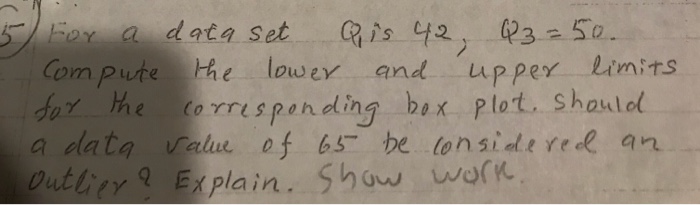 5) For a data set Q₁ is 42, Q3 = 50.
Compute the lower and upper limits
for the corresponding box plot. Should
a data value of 65 be considered an
Outlier? Explain. Show work.